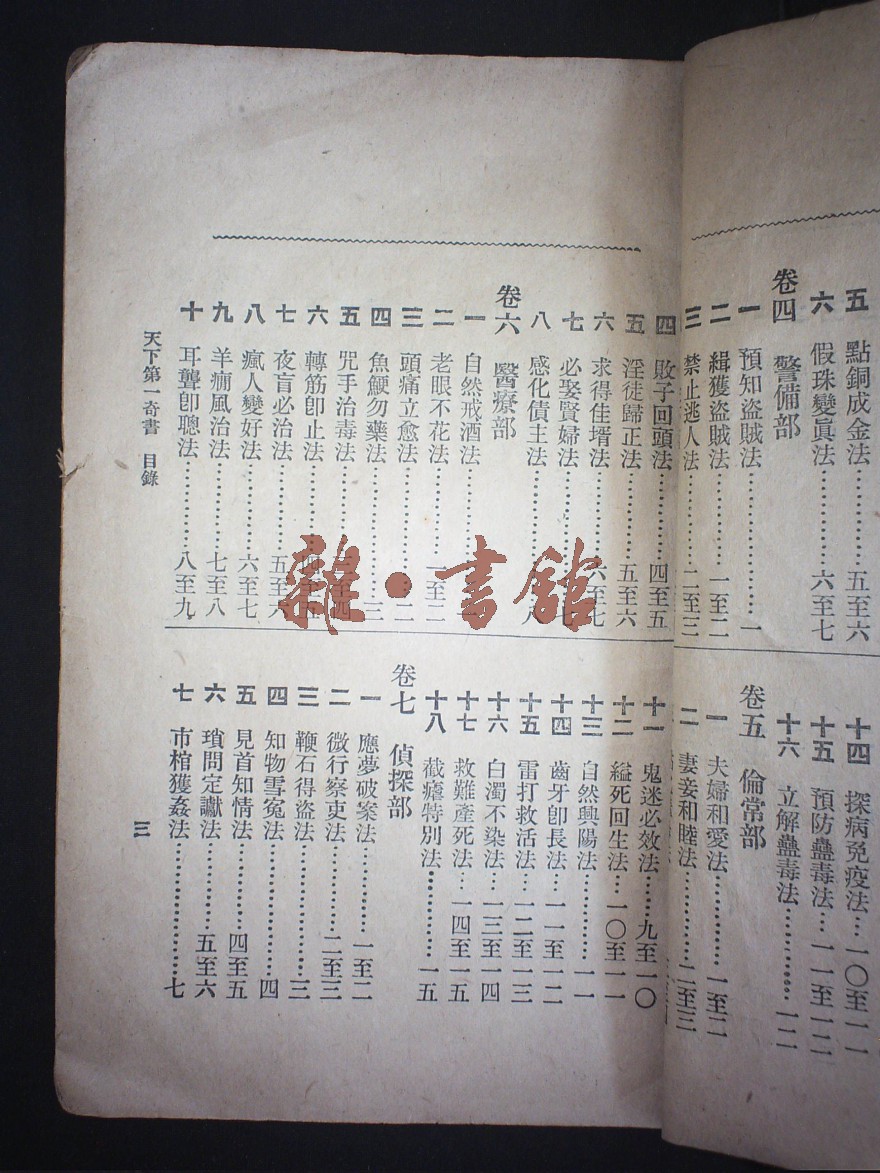 五 點銅成金法…………五至六
六 假珠變眞法…………六至七
卷四 警備部
一 預知盜賊法…………一
二 緝獲盜賊法…………一至二
三 禁止逃人法…………二至三
十四 探病免疫法…一〇至一一
十五 預防蠱毒法…一一至一二
十六 立解蠱毒法…………一二
卷五 倫常部
一 夫婦和愛法…………一至二
二 妻妾和睦法…………二至三
四 敗子回頭法…………四至五
五 淫徒歸正法…………五至六
六 求得佳壻法…………六至七
七 必娶賢婦法…………七
八 感化債主法…………八
卷六 醫療部
一 自然戒酒法…………一
二 老眼不花法…………一至二
三 頭痛立愈法…………二
四 魚鯁勿藥法…………三
五 咒手治毒法…………三至四
六 轉筋卽止法…………四至五
七 夜盲必治法…………五至六
八 瘋人變好法…………六至七
九 羊癇風治法…………七至八
十 耳聾卽聰法…………八至九
十一 鬼迷必效法…九至一〇
十二 縊死回生法…一〇至一一
十三 自然興陽法…………一一
十四 齒牙卽長法…一一至一二
十五 雷打救活法…一二至一三
十六 白濁不染法…一三至一四
十七 救難產死法…一四至一五
十八 截瘧特別法…………一五
卷七 偵探部
一 應夢破案法…………一至二
二 微行察吏法…………二至三
三 鞭石得盜法…………三
四 知物雪冤法…………四
五 見首知情法…………四至五
六 瑣問定讞法…………五至六
七 市棺獲姦法…………七
天下第一奇書 目錄
三
雜·書館